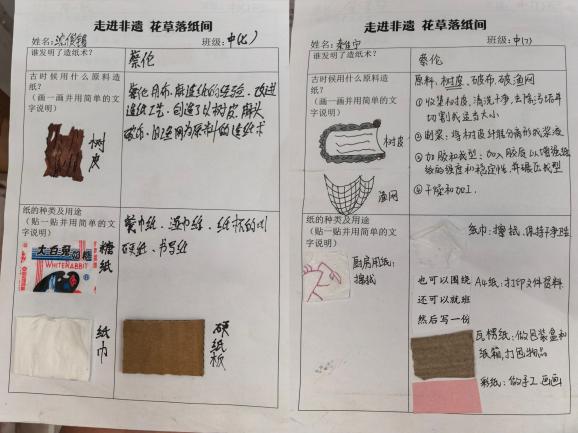 走进非遗 花草落纸间
姓名:
班级:中(七)
谁发明了造纸术?
蔡伦
古时候用什么原料造
纸?
(画一画并用简单的文
字说明)
树
皮
造纸工艺,创造了以树皮、麻头
破布、旧渔网为原料的造纸术
纸的种类及用途
(贴一贴并用简单的文
字说明)
大白兔奶糖
WHITE RABBIT
糖
纸
纸
巾
硬
纸
板
硬纸、书写纸
走进非遗 花草落纸间
姓名:
班级:中(7)
谁发明了造纸术?
蔡伦
古时候用什么原料造
纸?
(画一画并用简单的文
字说明)
树皮
渔网
原料:树皮、破布、破渔网
①收集树皮,清洗干净,去除污垢并
切割成适当大小
②制浆:将树皮分解
③加胶和成型:加入胶质以增强纸
纸的强度和稳定性,并碾压成型
④干燥和加工.
纸的种类及用途
(贴一贴并用简单的文
字说明)
厨房用纸:
擦拭
纸巾:擦拭、保持干净卫生
也可以围绕
还可以就班
然后写一份
A4纸:打印文件资料
瓦楞纸:做包装盒和
纸箱,打包物品
彩纸:做手工 画画